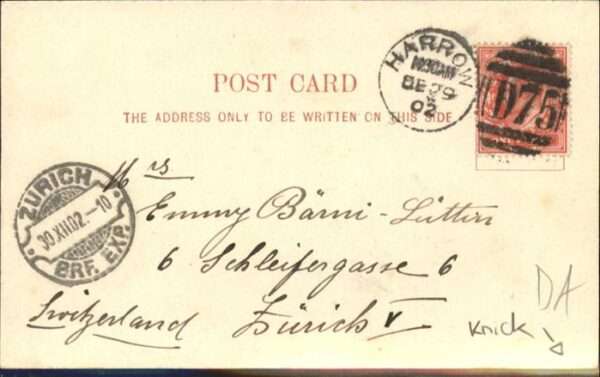 HARROW
1030AM
DE 29
02
D75
POST CARD
THE ADDRESS ONLY TO BE WRITTEN ON THIS SIDE
ZÜRICH
30.XII.02.-10
BRF. EXP.
Mrs
Emmy Bärni-Lütteri
6 Schleifergasse 6
Switzerland Zürich V
DA
Knick